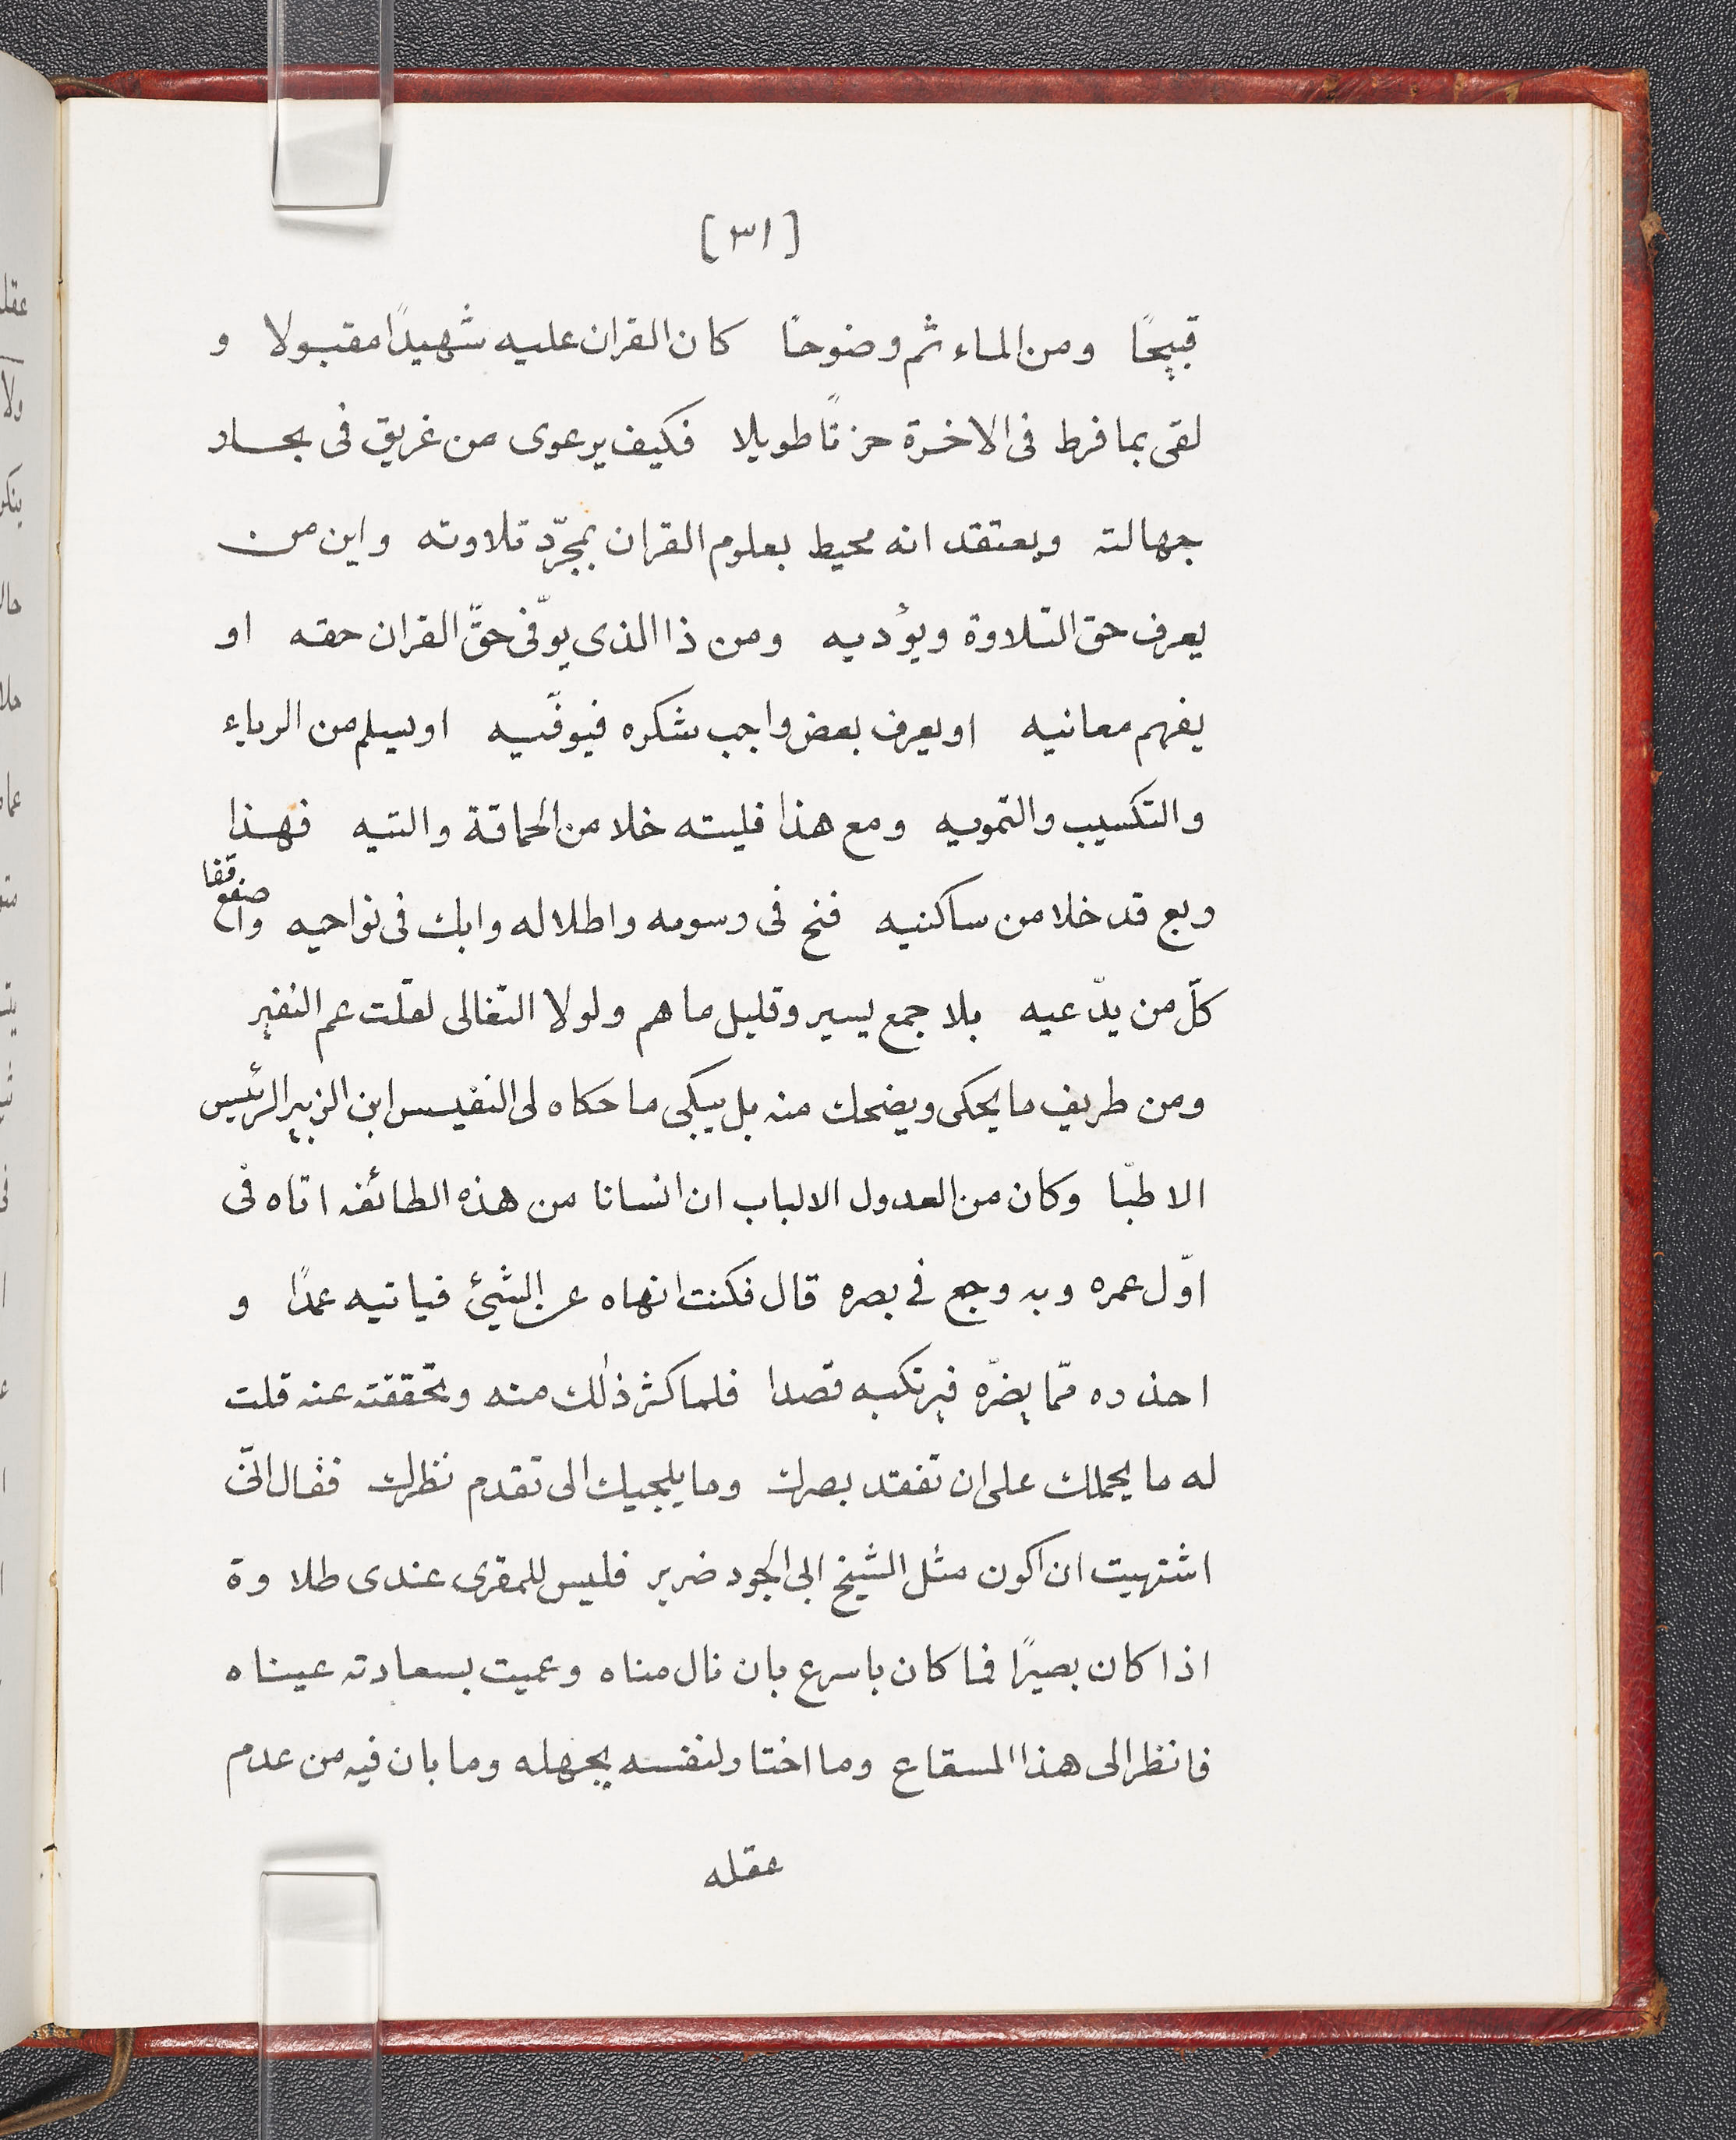 [٣١]
قبيحًا ومن الماء ثم وضوحًا كان القران عليه شهيدًا مقبولا و
لقى بما فرط فى الاخرة حزنًا طويلا فكيف يرعوى من غريق فى بحار
جهالته ويعتقد انه محيط بعلوم القران بمجرّد تلاوته واين من
يعرف حق التلاوة ويؤديه ومن ذا الذى يوّفى حقّ القران حقه او
يفهم معانيه او يعرف بعض واجب شكره فيوفّيه او يسلم من الرياء
والتكسيب والتمويه ومع هذا فليته خلا من الحماقة والتيه فهذا
ربع قد خلا من ساكنيه فنح فى رسومه واطلاله وابك فى نواحيه واصفع قفا
كلّ من يدّعيه بلا جمع يسير وقليل ما هم ولولا التغالى لقلت عم النفير
ومن طريف ما يحكى ويضحك منه بل يبكى ما حكاه لى النفيس ابن الزبير الرئيس
الاطبّا وكان من العدول الالباب ان انسانا من هذه الطائفه اتاه فى
اوّل عمره وبه وجع فى بصره قال فكنت انهاه عن الشيئ فياتيه عمدًا و
احذره ممّا يضرّه فيرتكبه قصدا فلما كثر ذلك منه وتحققته عنه قلت
له ما يحملك على ان تفقد بصرك وما يلجيك الى تقدم نظرك فقال انّى
اشتهيت ان اكون مثل الشيخ ابى الجود ضرير فليس للمقرى عندى طلاوة
اذا كان بصيرًا فما كان باسرع بان نال مناه وعميت بسعادته عيناه
فانظر الى هذا المسقاع وما اختار لنفسه بجهله وما بان فيه من عدم
عقله